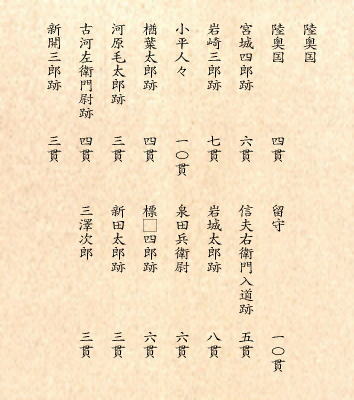 陸奥国
陸奥国 四貫 留守 一〇貫
宮城四郎跡 六貫 信夫右衛門入道跡 五貫
岩崎三郎跡 七貫 岩城太郎跡 八貫
小平人々 一〇貫 泉田兵衛尉 六貫
楢葉太郎跡 四貫 標□四郎跡 六貫
河原毛太郎跡 三貫 新田太郎跡 三貫
古河左衛門尉跡 四貫 三澤次郎 三貫
新開三郎跡 三貫